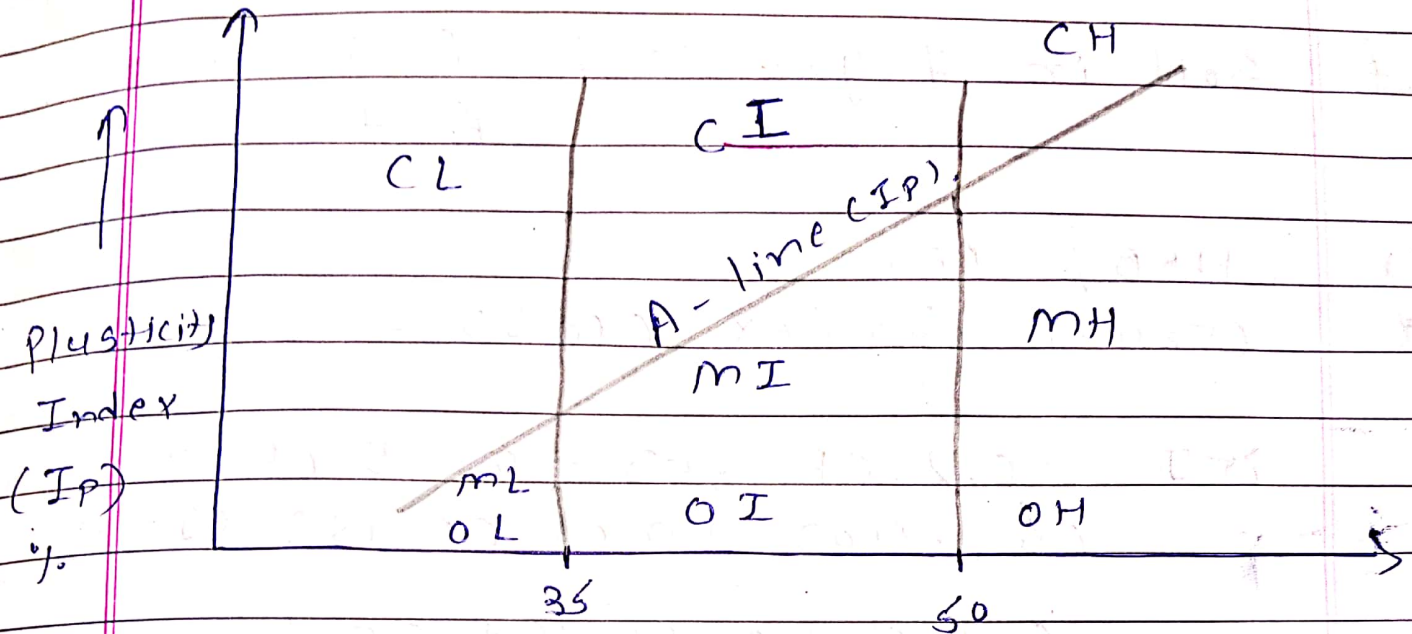 CH
CI
CL
A-line (Ip)
Plasticity
Index
(Ip)
%
MH
MI
ML
OL
OI
OH
35
50